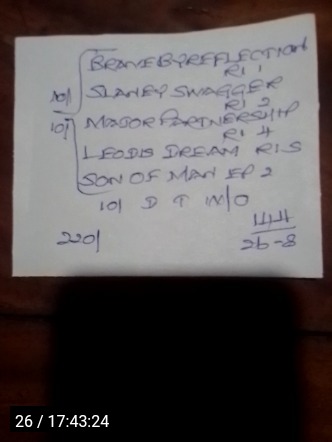 BRAVE BY REFLECTION
RI 1
10/ SLANEY SWAGGER
RI 2
10/ MAJOR PARTNERSHIP
RI 4
LEODIS DREAM RI 5
SON OF MAN EP 2
10/ D T W/O
220/ 44
26-8
26 / 17:43:24